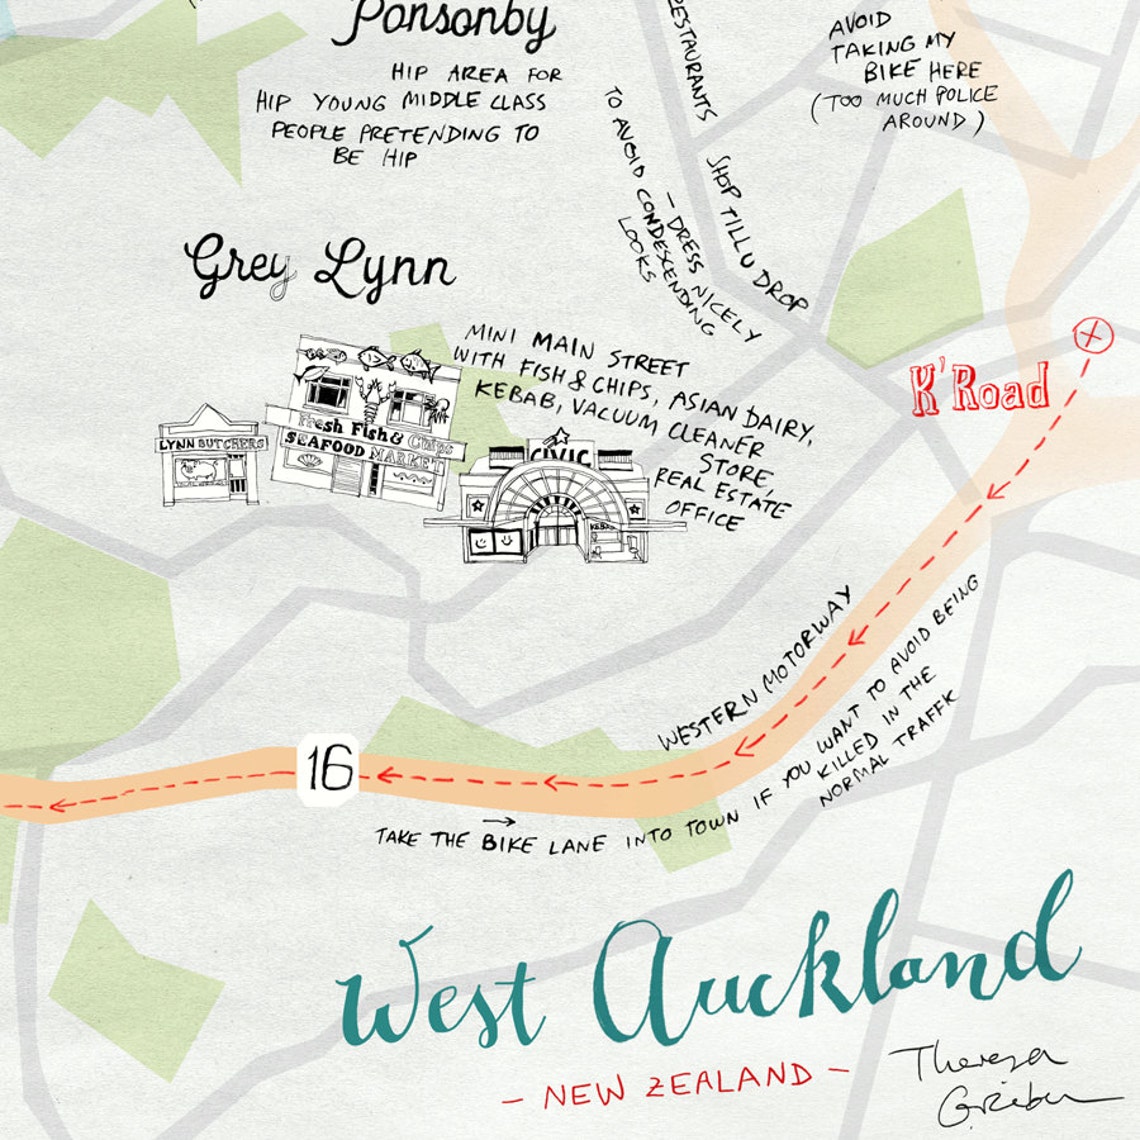 Ponsonby
HIP AREA FOR
HIP YOUNG MIDDLE CLASS
PEOPLE PRETENDING TO
BE HIP
RESTAURANTS
SHOP TILL U DROP
TO AVOID CONDESCENDING
LOOKS
- DRESS NICELY
AVOID
TAKING MY
BIKE HERE
(TOO MUCH POLICE
AROUND)
Grey Lynn
MINI MAIN STREET
WITH FISH & CHIPS, ASIAN DAIRY,
KEBAB, VACUUM CLEANER
STORE,
REAL ESTATE
OFFICE
LYNN BUTCHERS
Fresh Fish & Chips
SEAFOOD MARKET
CIVIC
KEBAB
K'Road
WESTERN MOTORWAY
16
TAKE THE BIKE LANE INTO TOWN IF YOU WANT TO AVOID BEING
KILLED IN THE
NORMAL TRAFFIC
West Auckland
- NEW ZEALAND -
Theresa
Grieben